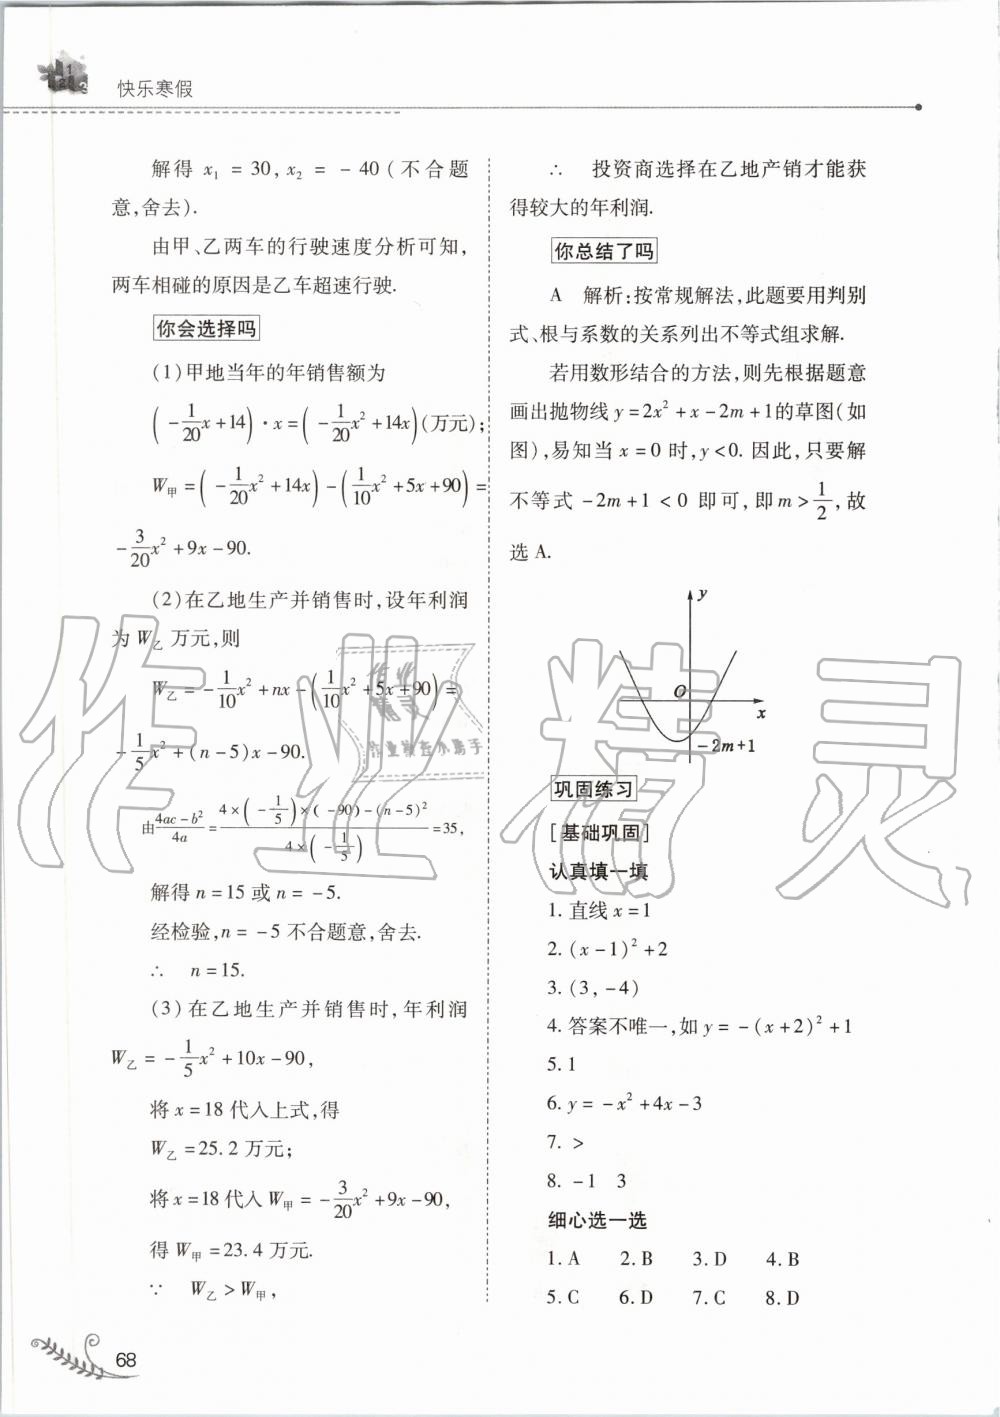 快乐寒假
解得 x₁ = 30, x₂ = －40(不合题
意,舍去).
由甲、乙两车的行驶速度分析可知,
两车相碰的原因是乙车超速行驶.
你会选择吗
(1)甲地当年的年销售额为
(－1/20 x＋14)·x＝(－1/20 x²＋14x)(万元);
W甲＝(－1/20 x²＋14x)－(1/10 x²＋5x＋90)＝
－3/20 x²＋9x－90.
(2)在乙地生产并销售时,设年利润
为 W乙 万元,则
W乙＝－1/10 x²＋nx－(1/10 x²＋5x＋90)＝
－1/5 x²＋(n－5)x－90.
由(4ac－b²)/4a＝(4×(－1/5)×(－90)－(n－5)²)/(4×(－1/5))＝35,
解得 n＝15 或 n＝－5.
经检验,n＝－5 不合题意,舍去.
∴　n＝15.
(3)在乙地生产并销售时,年利润
W乙＝－1/5 x²＋10x－90,
将 x＝18 代入上式,得
W乙＝25.2 万元;
将 x＝18 代入 W甲＝－3/20 x²＋9x－90,
得 W甲＝23.4 万元.
∵　W乙＞W甲,
∴　投资商选择在乙地产销才能获
得较大的年利润.
你总结了吗
A　解析:按常规解法,此题要用判别
式、根与系数的关系列出不等式组求解.
若用数形结合的方法,则先根据题意
画出抛物线 y＝2x²＋x－2m＋1的草图(如
图),易知当 x＝0 时,y＜0. 因此,只要解
不等式 －2m＋1＜0 即可,即 m＞1/2,故
选 A.
y
O
x
－2m＋1
巩固练习
[基础巩固]
认真填一填
1. 直线 x＝1
2. (x－1)²＋2
3. (3,－4)
4. 答案不唯一,如 y＝－(x＋2)²＋1
5. 1
6. y＝－x²＋4x－3
7. ＞
8. －1　3
细心选一选
1. A　2. B　3. D　4. B
5. C　6. D　7. C　8. D
68
作业精灵
作业
精灵